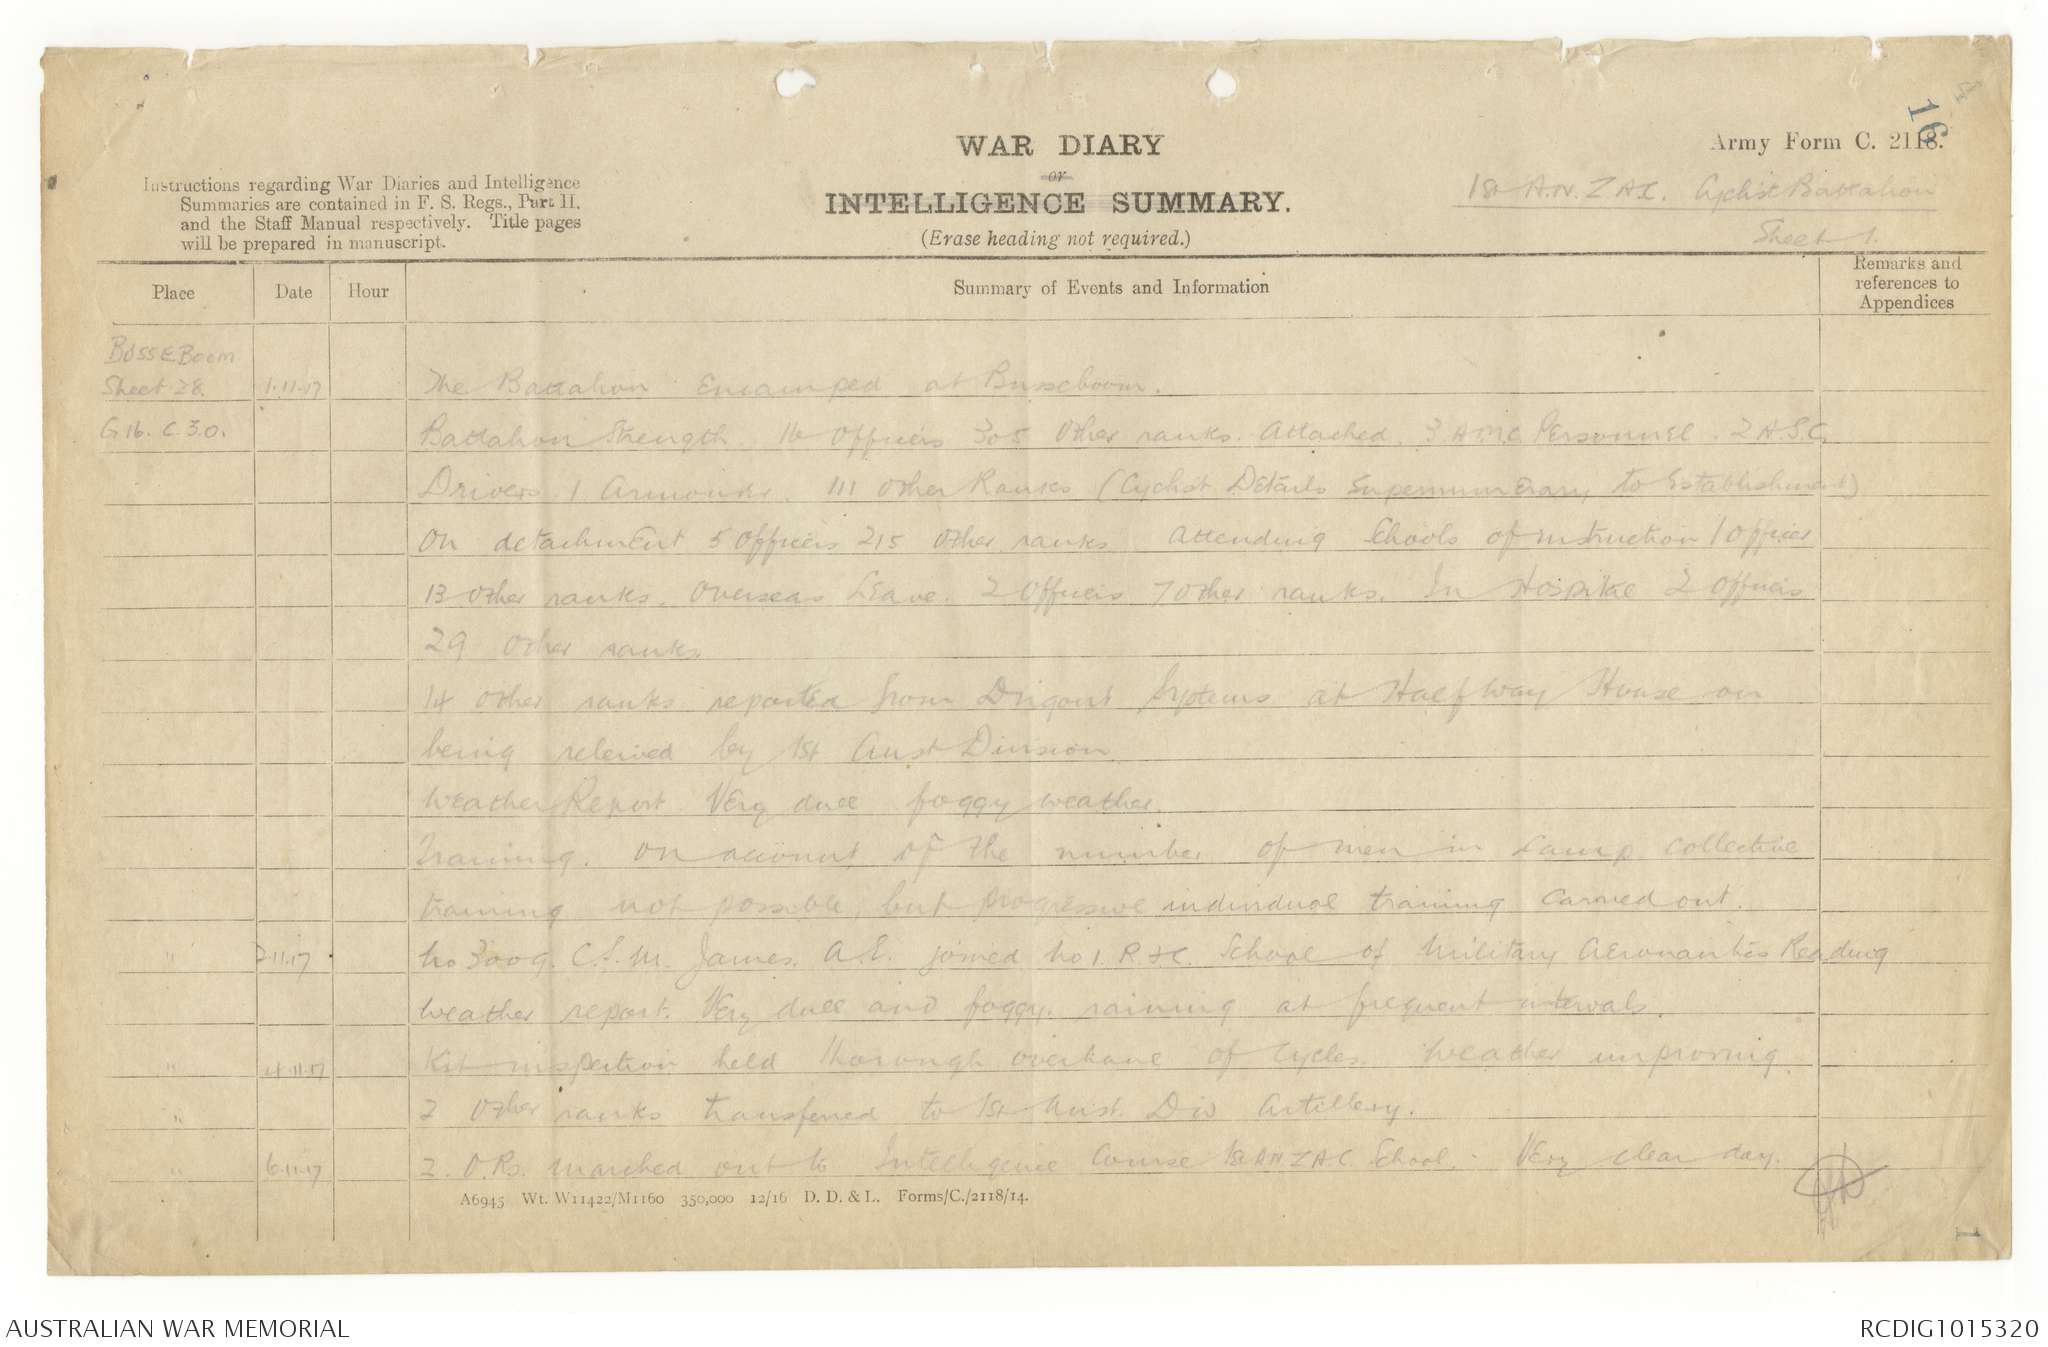 16
Army Form C. 2118.
WAR DIARY
or
INTELLIGENCE SUMMARY.
(Erase heading not required.)
Instructions regarding War Diaries and Intelligence
Summaries are contained in F. S. Regs., Part II.
and the Staff Manual respectively. Title pages
will be prepared in manuscript.
1st A.N.ZAC. Cyclist Battalion
Sheet 1.
Place Date Hour Summary of Events and Information Remarks and references to Appendices
BUSSEBOOM
Sheet 28. 1.11.17 The Battalion Encamped at Busseboom.
G16. C.3.0. Battalion Strength 16 Officers 305 Other ranks. Attached. 3 A.M.C Personnel. 2 A.S.C.
Drivers. 1 Armourer. 111 other Ranks (Cyclist Details Supernumerary to Establishment)
On detachment 5 Officers 215 other ranks Attending Schools of instruction 1 Officer
13 other ranks. Overseas Leave. 2 Officers 7 other ranks. In Hospital 2 Officers
29 other ranks.
14 other ranks reported from Systems at Halfway House on
being releived by 1st Aust Division.
Weather Report. Very dull foggy weather.
Training. On account of the number of men in Camp collective
training not possible, but progressive individual training carried out.
" 2.11.17 No 3009. C.S.M. James. A.E. joined No 1. School of Military Aeronautics Reading
Weather report. Very dull and foggy. raining at frequent intervals.
" 4.11.17 Kit inspection held thorough overhaul of Cycles. Weather improving.
" 2 other ranks transferred to 1st Aust. Div Artillery.
" 6.11.17 2. O.Rs. marched out to Intelligence Course 1st ANZAC School. Very clear day.
A6945 Wt. W11422/M1160 350,000 12/16 D. D. & L. Forms/C./2118/14.
1
AUSTRALIAN WAR MEMORIAL
RCDIG1015320